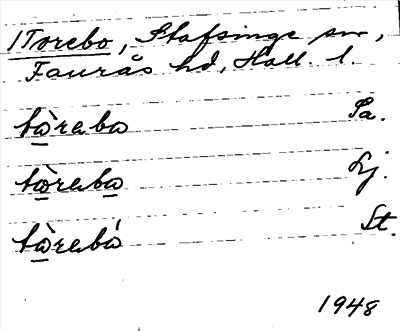 1 Torebo, Stafsinge sn,
Faurås hd, Hall. l.
tòrebo Sa.
tòrebo Lj.
tòrebó St.
1948